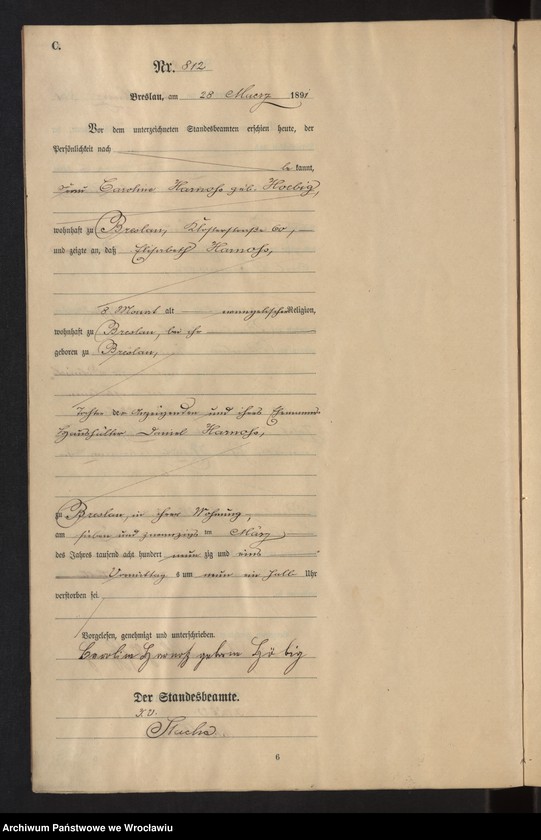 C.
Nr. 812
Breslau, am 28 Maerz 1891
Vor dem unterzeichneten Standesbeamten erschien heute, der
Persönlichkeit nach
be kannt,
Frau Caroline Harnoß geb. Hoebig,
wohnhaft zu Breslau, Klosterstraße 60,
und zeigte an, daß Elisabeth Harnoß,
8 Monat alt evangelischer Religion,
wohnhaft zu Breslau, bei ihr
geboren zu Breslau,
Tochter der Anzeigenden und ihres Ehemanns
Haushälter Daniel Harnoß,
zu Breslau, in ihrer Wohnung,
am sieben und zwanzigsten März
des Jahres tausend acht hundert neun zig und eins
Vormittags um neun ein halb Uhr
verstorben sei.
Vorgelesen, genehmigt und unterschrieben.
geboren Höbig
Der Standesbeamte.
6
Archiwum Państwowe we Wrocławiu